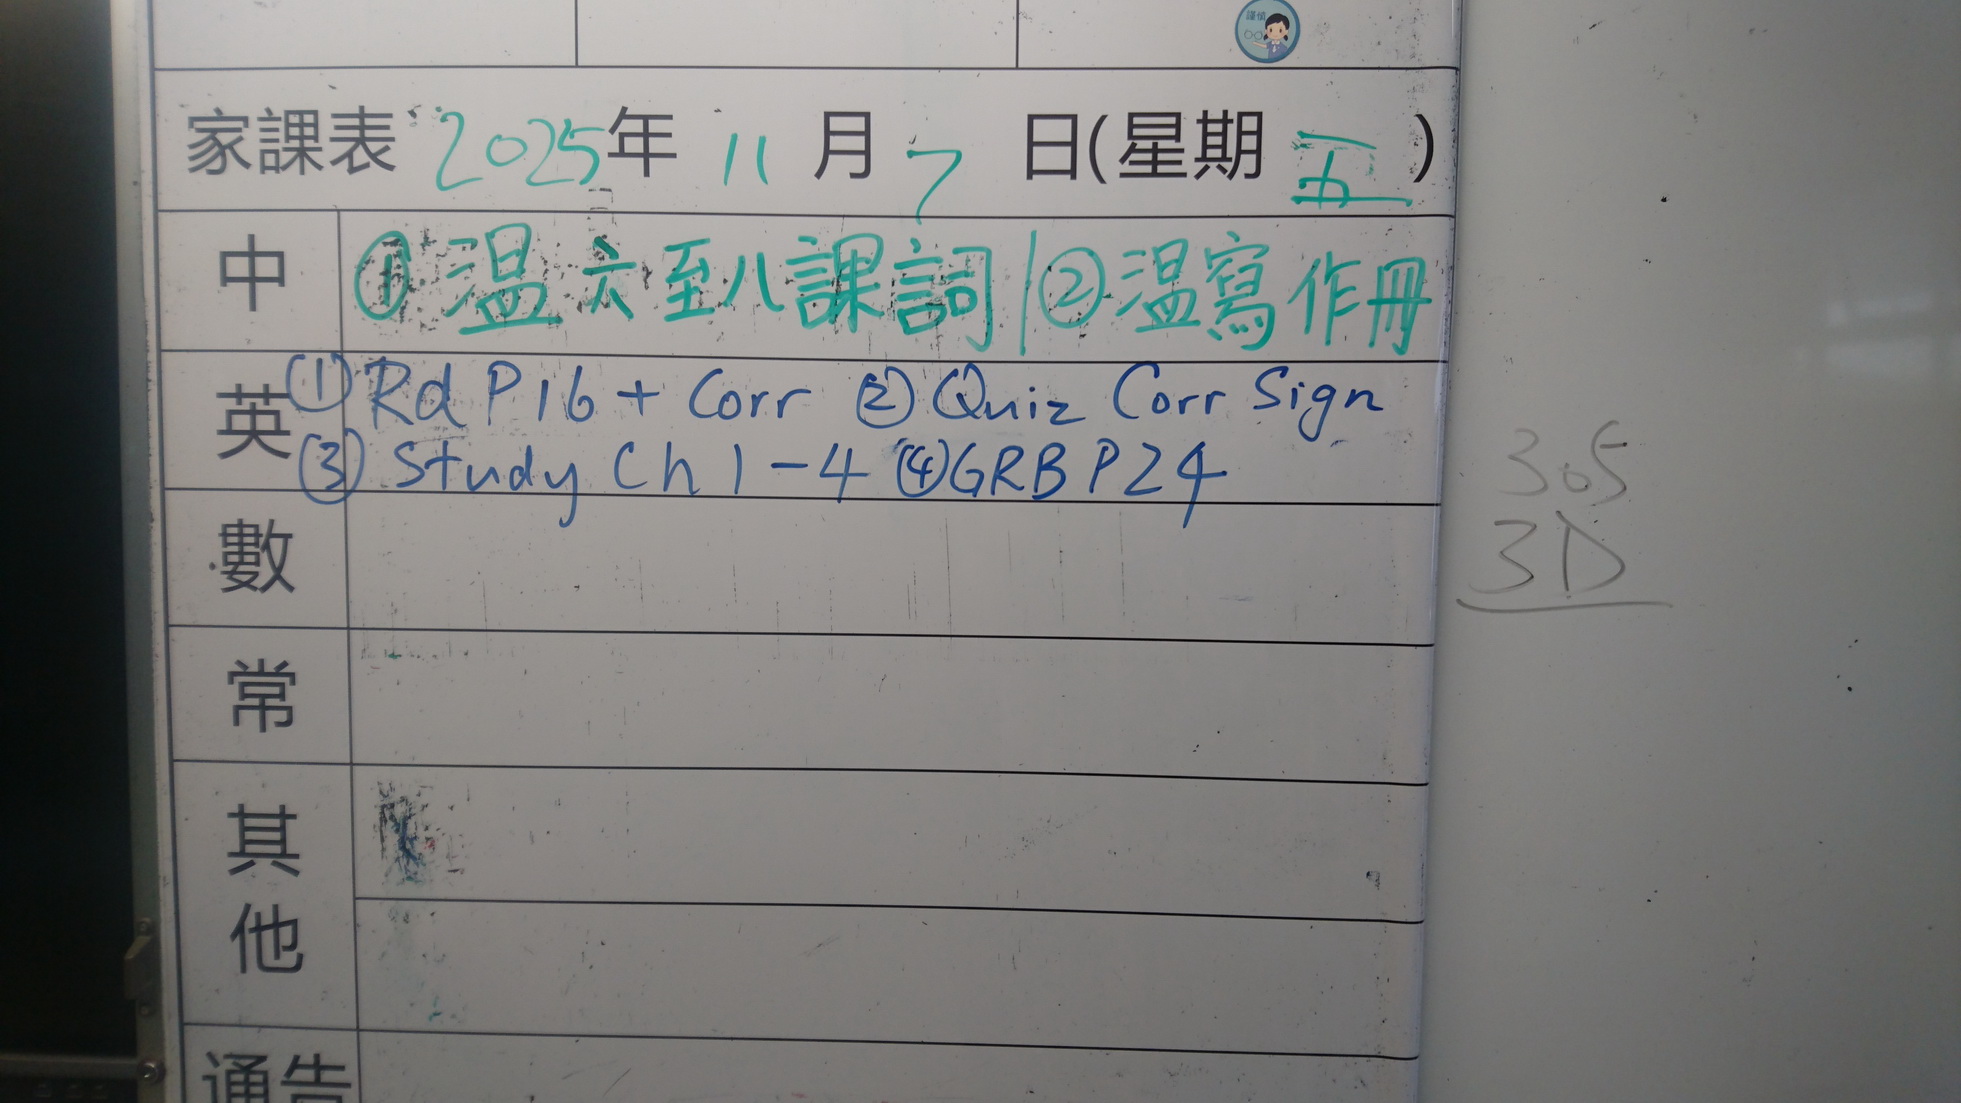 謹慎
家課表 2025年 11 月 7 日(星期 五 )
中 ① 温 六至八課詞 | ② 温寫作冊
英 ① Rd P16 + Corr ② Quiz Corr Sign
③ Study Ch 1-4 ④ GRB P24
305
3D
數
常
其他
通告